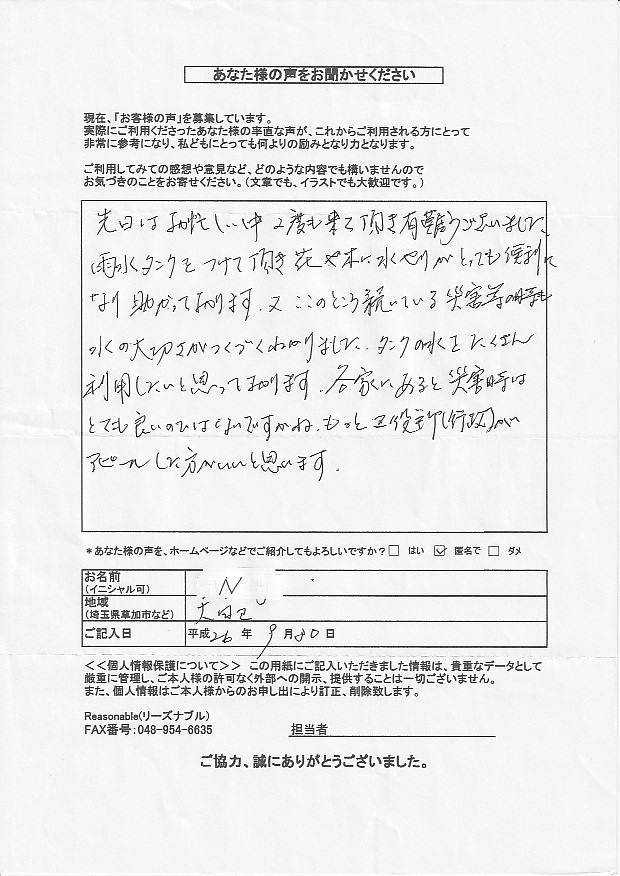 あなた様の声をお聞かせください
現在、「お客様の声」を募集しています。
実際にご利用くださったあなた様の率直な声が、これからご利用される方にとって
非常に参考になり、私どもにとっても何よりの励みとなり力となります。
ご利用してみての感想や意見など、どのような内容でも構いませんので
お気づきのことをお寄せください。（文章でも、イラストでも大歓迎です。）
先日はお忙しい中2度も来て頂き有難うございました、
雨水タンクをつけて頂き花や木に水やりがとっても便利に
なり助かっております。又ここのところ続いている災害等の時も
水の大切さがつくづくわかりました。タンクの水をたくさん
利用したいと思っております。各家にあると災害時は
とても良いのではないですかね。もっと区役所(行政)が
アピールした方がいいと思います。
＊あなた様の声を、ホームページなどでご紹介してもよろしいですか？□ はい ☑ 匿名で □ ダメ
お名前
（イニシャル可） N
地域
（埼玉県草加市など） 文京区
ご記入日 平成26年 9月30日
＜＜個人情報保護について＞＞ この用紙にご記入いただきました情報は、貴重なデータとして
厳重に管理し、ご本人様の許可なく外部への開示、提供することは一切ございません。
また、個人情報はご本人様からのお申し出により訂正、削除致します。
Reasonable(リーズナブル)
FAX番号：048-954-6635 担当者
ご協力、誠にありがとうございました。